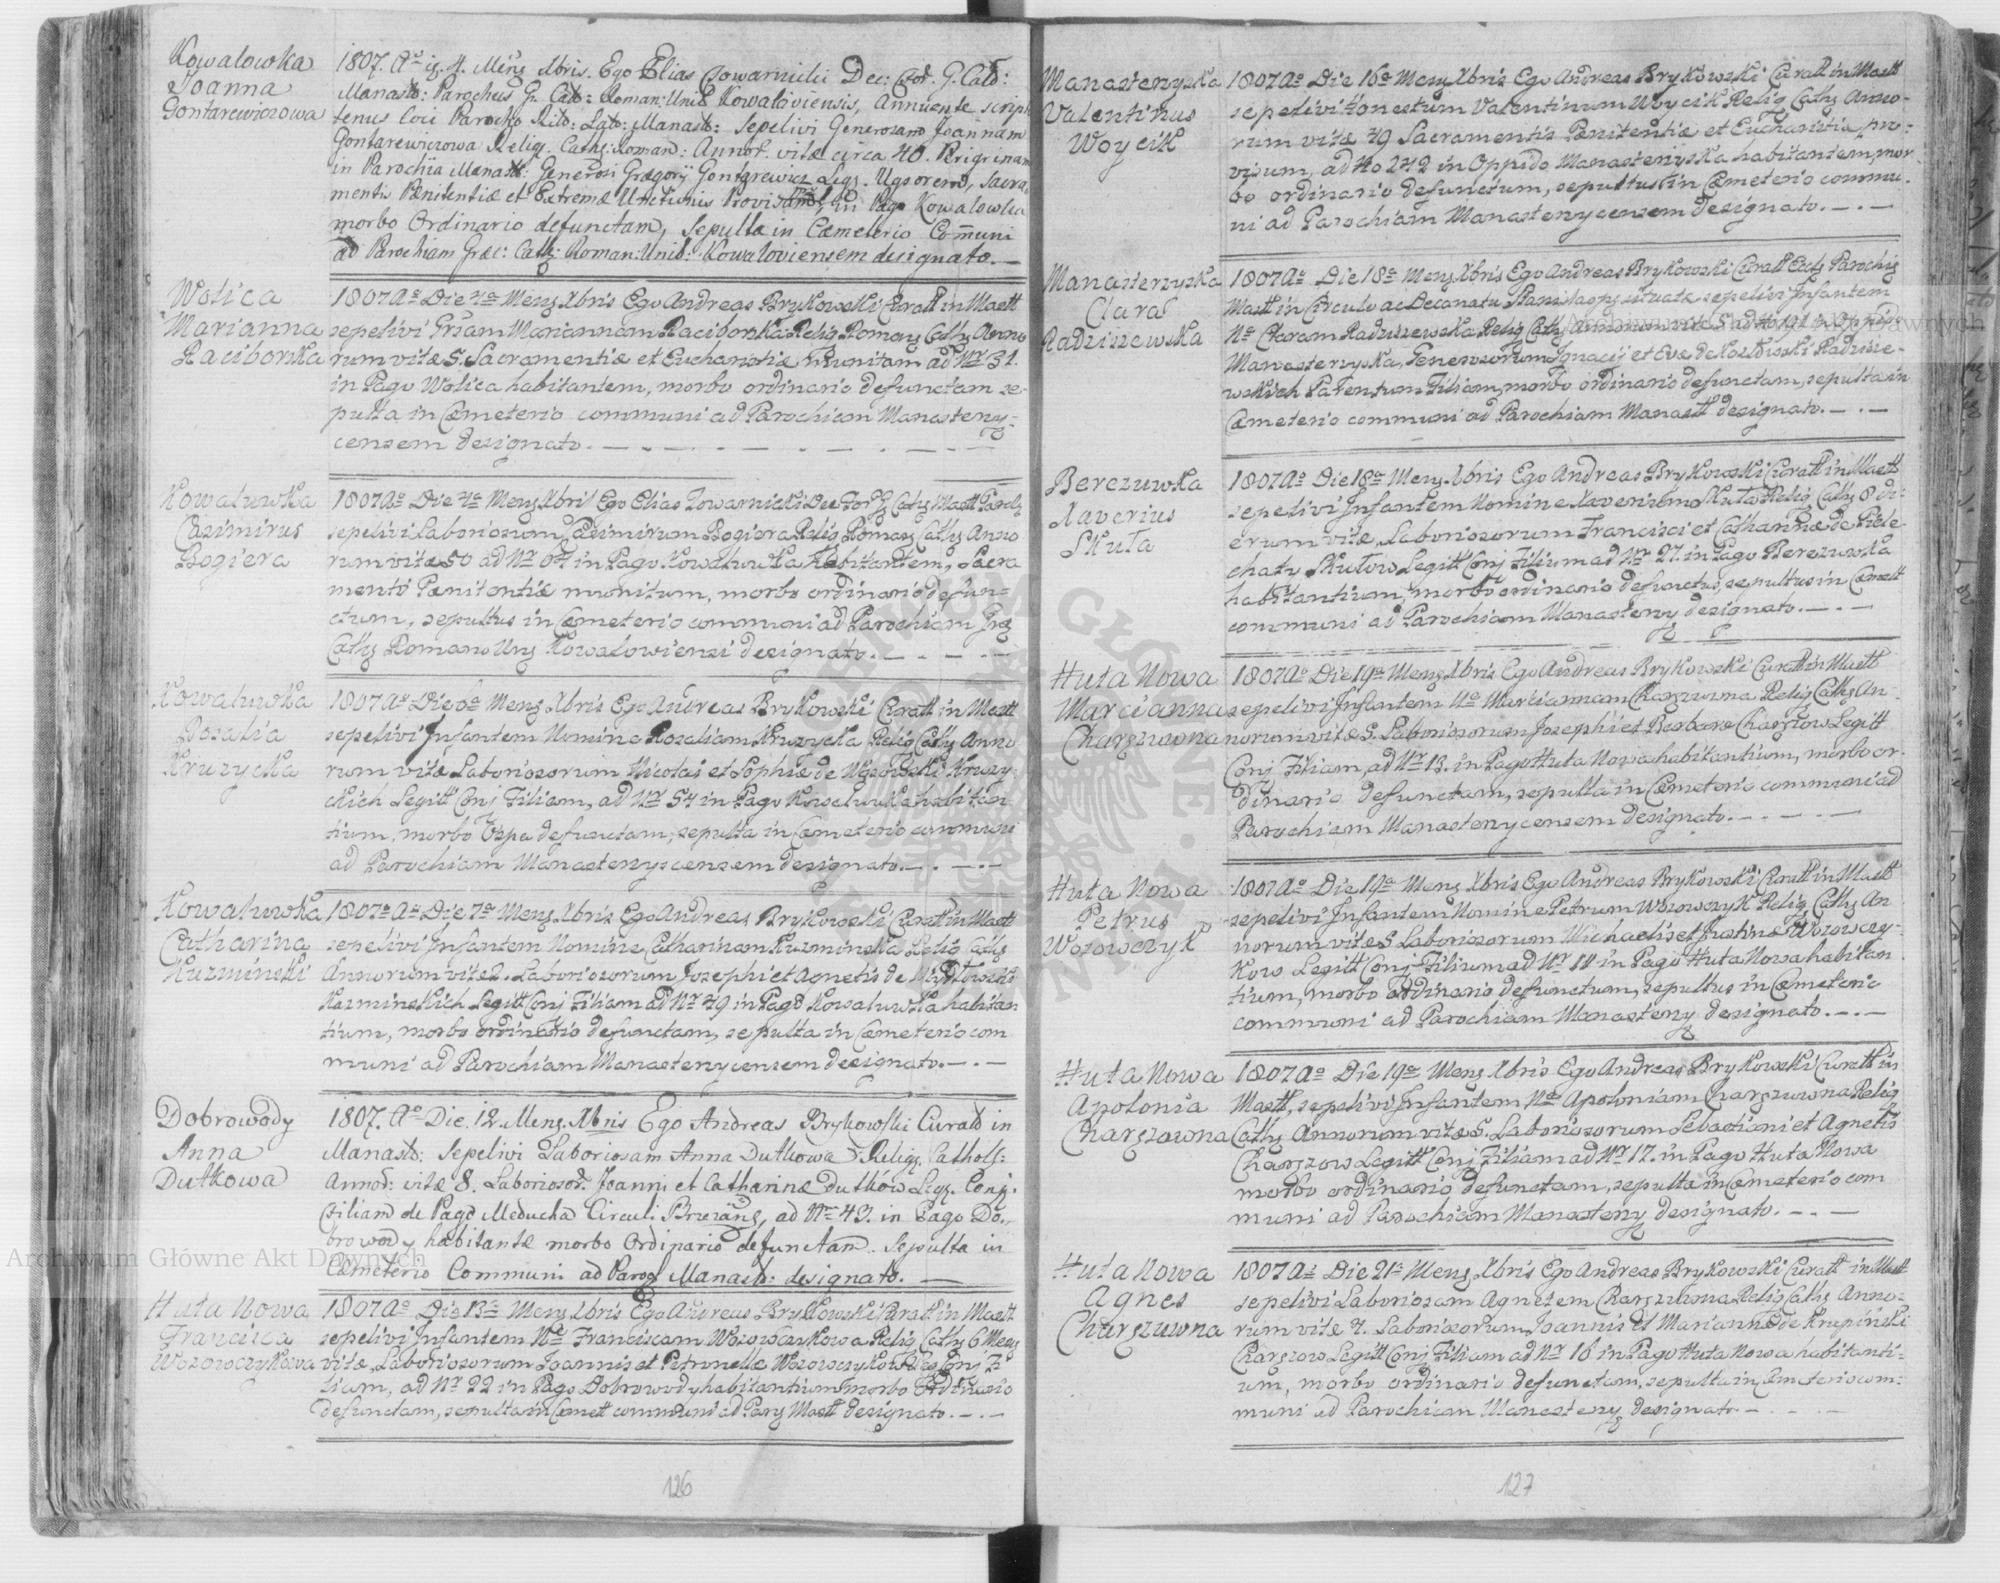 Kowalowka
Joanna
Gontarewiczowa
1807. Ao Mens Xbris. Ego Elias Towarnicki Dec: For. G. Cath:
Manast: Parochus Gr. Cath: Roman: Unit Kowaloviensis, Annuente script
tenus loci Parocho Rito: Lato: Manast: Sepelivi Generosam Joannam
Gontarewiczowa Relig. Cath: Roman: Annor. vitæ circa 40. Perigrinam
in Parochia Manast: Generosi Gregorij Gontarewicz Leg. Uxorem, Sacra
mentis Pænitentiæ et Extremæ Unctionis Provisam, in Pago Kowalowka
morbo Ordinario defunctam, Sepulta in Cæmeterio Communi
ad Parochiam Græc: Cath: Roman: Unit: Kowaloviensem designato. —
Wolica
Marianna
Raciborska
1807 Ao Die 4a Mens Xbris Ego Andreas Brykowski Curatt in Mastt
sepelivi Mariannam Raciborska Relig Romans Cath Anno
rum vitæ 5. Sacramentiæ et Eucharistiæ Munitam ad Nr 31.
in Pago Wolica habitantem, morbo ordinario defunctam se-
pulta in Cæmeterio communi ad Parochiam Manastery-
censem designato. — . —
Kowaluwka
Casimirus
Bogiera
1807 Ao Die 4a Mens Xbris Ego Elias Towarnicki Dec For Cath Mastt Paroch
sepelivi Laboriosum Casimirum Bogiera Relig Romans Cath Anno
rum vitæ 50 ad Nr 64 in Pago Kowaluwka habitantem, Sacra
menti Pænitentiæ munitum, morbo ordinario defun-
ctum, sepultus in Cæmeterio communi ad Parochiam Græ
Cath Romano Un Kowalowiensi designato. — . —
Kowaluwka
Rosalia
Kruzycka
1807 Ao Die 6a Mens Xbris Ego Andreas Brykowski Curatt in Mastt
sepelivi Infantem Nomine Rosaliam Kruzycka Relig Cath Anno
rum vitæ Laboriosorum Nicolai et Sophiæ de Kruzy-
ckich Legitt Conj Filiam, ad Nr 54 in Pago Kowaluwka habitan
tium, morbo Ospa defunctam, sepulta in Cæmeterio communi
ad Parochiam Manasteryscensem designato. — . —
Kowaluwka
Catharina
Kuzminski
1807 Ao Die 7a Mens Xbris Ego Andreas Brykowski Curatt in Mastt
sepelivi Infantem Nomine Catharinam Kuzminska Relig Cath
Annorum vitæ 2. Laboriosorum Josephi et Agnetis de
Kuzminskich Legitt Conj Filiam ad Nr 49 in Pago Kowaluwka habitan
tium, morbo ordinario defunctam, sepulta in Cæmeterio com
muni ad Parochiam Manasterycensem designato. — . —
Dobrowody
Anna
Dutkowa
1807. Ao Die. 12. Mens. Xbris Ego Andreas Brykowski Curato in
Manast: Sepelivi Laboriosam Anna Dutkowa Relig. Cathol:
Annor: vitæ 8. Laboriosor. Joanni et Catharinæ Dutków Leg. Conj.
Filiam de Pago Meducha Circuli Brzezans, ad Nro 43. in Pago Do-
browody habitantæ morbo Ordinario defunctam. Sepulta in
Cæmeterio Communi ad Paroch Manast: designato. —
Huta Nowa
Francisca
Wozowczykowa
1807 Ao Die 13a Mens Xbris Ego Andreas Brykowski Curatt in Mastt
sepelivi Infantem Ne Franciscam Wozowczykowa Relig Cath 6 Mens
vitæ Laboriosorum Joannis et Petronellæ Wozowczykow Conj Fi
liam, ad Nr 22 in Pago Dobrowody habitantium morbo Ordinario
defunctam, sepulta in Cæmett communi ad Par Mastt designato. — . —
126
Manasteryska
Valentinus
Woycik
1807 Ao Die 16a Mens Xbris Ego Andreas Brykowski Curatt in Mastt
sepelivi Honestum Valentinum Woycik Relig Cath Anno-
rum vitæ 49 Sacramentis Pænitentiæ et Eucharistiæ pro-
visum, ad No 242 in Oppido Manasteryska habitantem, mor-
bo ordinario defunctum, sepultus in Cæmeterio commu-
ni ad Parochiam Manasterycensem designato. — . —
Manasteryska
Clara
Radziszewska
1807 Ao Die 18a Mens Xbris Ego Andreas Brykowski Curatt Parochiæ
Mastt in Circulo ac Decanatu situatæ sepelivi Infantem
Ne Claram Radziszewska Relig Cath Annorum vitæ 5 ad No 191 in Oppido
Manasteryska, Generosorum Ignacij et Evæ de Kozłowski Radzisze-
wskich Parentum Filiam, morbo ordinario defunctam, sepulta in
Cæmeterio communi ad Parochiam Manastt designato. — . —
Berezuwka
Xaverius
Skuła
1807 Ao Die 18a Mens Xbris Ego Andreas Brykowski Curatt in Mastt
sepelivi Infantem Nomine Xaverium Skuła Relig Cath 8 di-
erum vitæ, Laboriosorum Francisci et Catharinæ de Piele
chaty Skułow Legitt Conj Filium ad Nr 27. in Pago Berezuwka
habitantium, morbo ordinario defunctus, sepultus in Cæmett
communi ad Parochiam Manastery designato. — . —
Huta Nowa
Marcianna
Charszuwna
1807 Ao Die 19a Mens Xbris Ego Andreas Brykowski Curatt in Mastt
sepelivi Infantem Ne Marciannam Charszuwna Relig Cath An-
norum vitæ 5. Laboriosorum Josephi et Barbaræ Charszow Legitt
Conj Filiam, ad Nr 13. in Pago Huta Nowa habitantium, morbo or-
dinario defunctam, sepulta in Cæmeterio communi ad
Parochiam Manasterycensem designato. — . —
Huta Nowa
Petrus
Wozowczyk
1807 Ao Die 19a Mens Xbris Ego Andreas Brykowski Curatt in Mastt
sepelivi Infantem Nomine Petrum Wozowczyk Relig Cath An
norum vitæ 5 Laboriosorum Michaelis et Justinæ Wozowczy-
kow Legitt Conj Filium ad Nr 11 in Pago Huta Nowa habitan
tium, morbo ordinario defunctum, sepultus in Cæmeterio
communi ad Parochiam Manastery designato. — . —
Huta Nowa
Apolonia
Charszowna
1807 Ao Die 19a Mens Xbris Ego Andreas Brykowski Curatt in
Mastt, sepelivi Infantem Ne Apoloniam Charszuwna Relig
Cath Annorum vitæ 5. Laboriosorum Sebastiani et Agnetis
Charszow Legitt Conj Filiam ad Nr 17. in Pago Huta Nowa
morbo ordinario defunctam, sepulta in Cæmeterio com
muni ad Parochiam Manastery designato. — . —
Huta Nowa
Agnes
Charszuwna
1807 Ao Die 21a Mens Xbris Ego Andreas Brykowski Curatt in Mastt
sepelivi Laboriosam Agnetem Charszuwna Relig Cath Anno-
rum vitæ 7. Laboriosorum Joannis et Mariannæ de Krupinski
Charszow Legitt Conj Filiam ad Nr 16 in Pago Huta Nowa habitanti-
um, morbo ordinario defunctam, sepulta in Cæmeterio com-
muni ad Parochiam Manastery designato. —
127
Archiwum Główne Akt Dawnych
Archiwum Główne Akt Dawnych